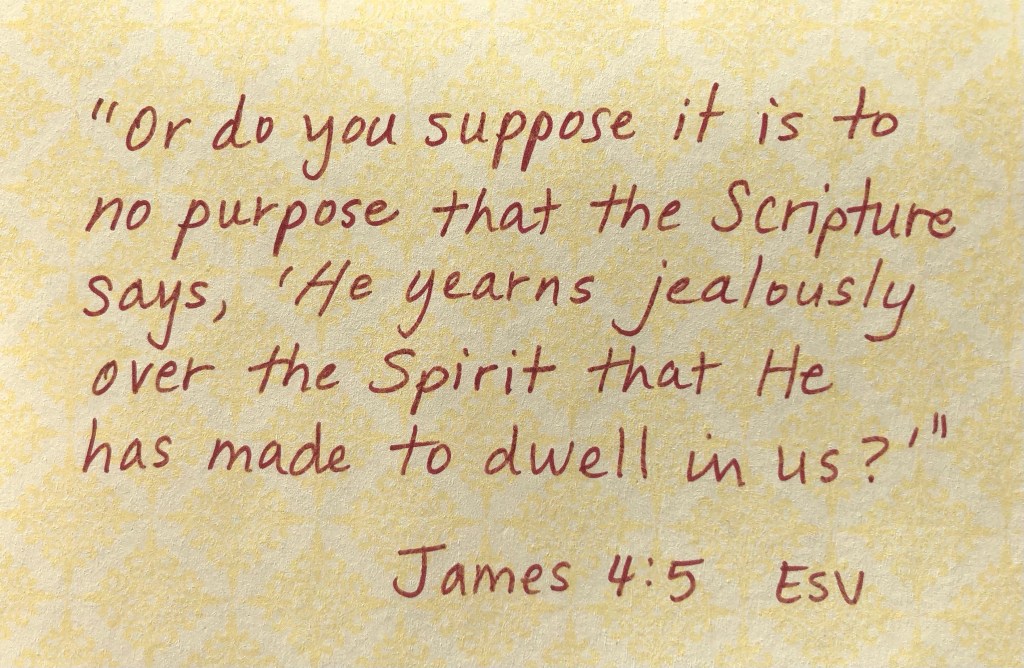 "Or do you suppose it is to
no purpose that the Scripture
says, 'He yearns jealously
over the Spirit that He
has made to dwell in us?'"
James 4:5 ESV